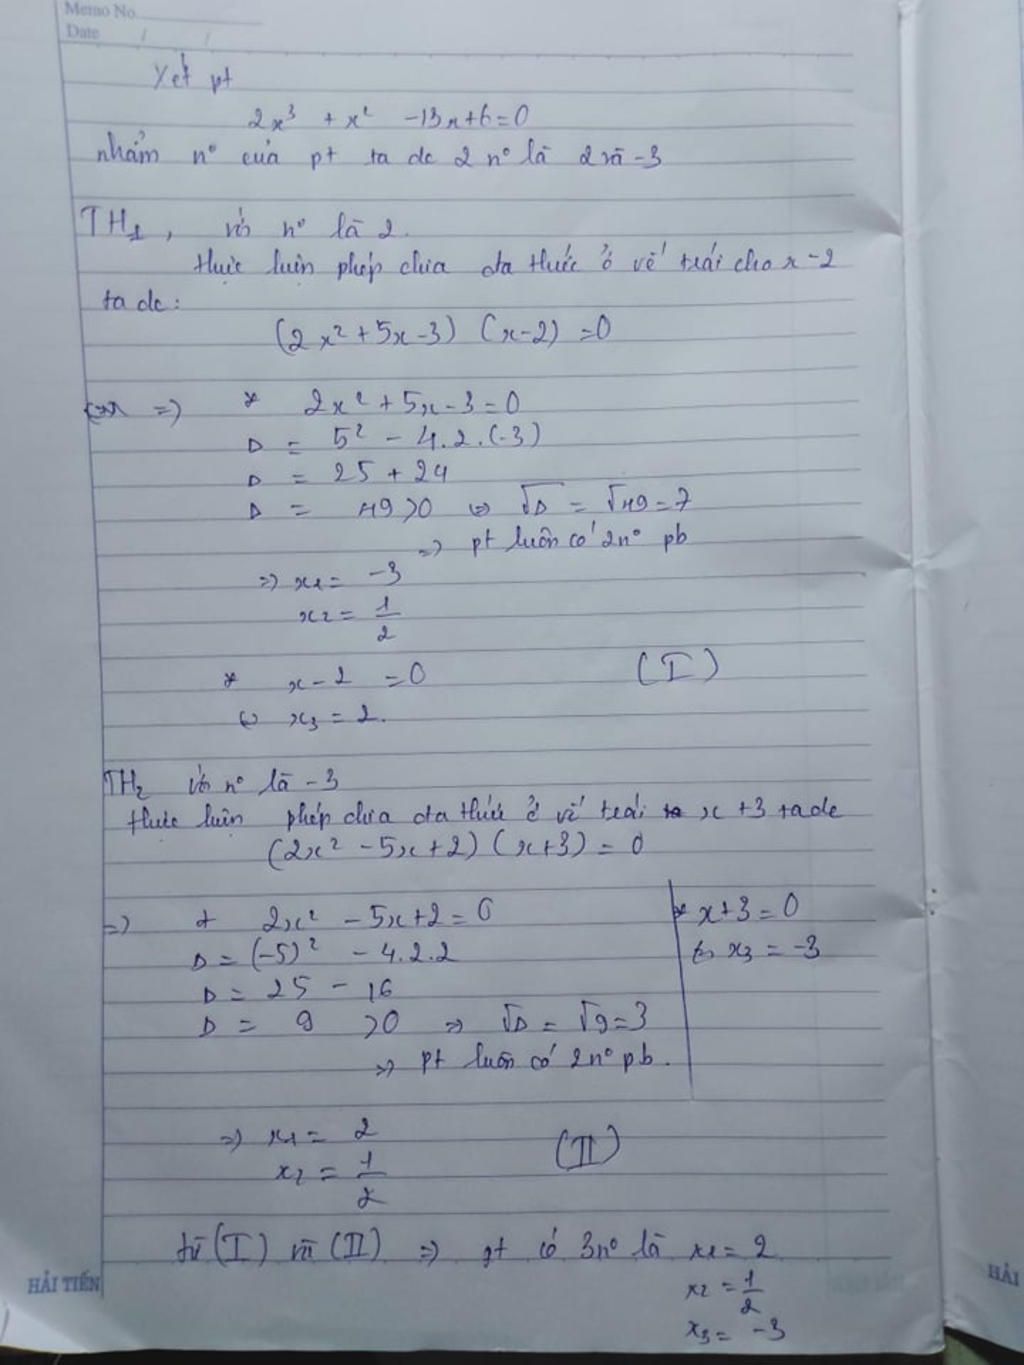 Memo No.
Date / /
Xét pt
2x³ + x² -13x+6=0
nhẩm n° của pt ta dc 2 n° là 2 và -3
TH1, với n° là 2.
thực hiện phép chia đa thức ở vế trái cho x-2
ta dc:
(2x²+5x-3) (x-2) =0
=) * 2x²+5x-3=0
Δ = 5² - 4.2.(-3)
Δ = 25 + 24
Δ = 49>0 ⇔ √Δ = √49=7
=> pt luôn có 2n° pb
=> x1= -3
x2= 1/2
* x-2 =0 (I)
⇔ x3=2.
TH2 với n° là -3
thực hiện phép chia đa thức ở vế trái x+3 ta dc
(2x²-5x+2)(x+3)=0
=) + 2x² -5x+2=0 * x+3=0
Δ=(-5)² -4.2.2 ⇔ x3=-3
Δ=25 - 16
Δ= 9 >0 => √Δ = √9=3
=> pt luôn có 2n° pb.
=> x1= 2 (II)
x2= 1/2
từ (I) và (II) => pt có 3n° là x1=2
x2=1/2
x3= -3
HẢI TIẾN
HẢI